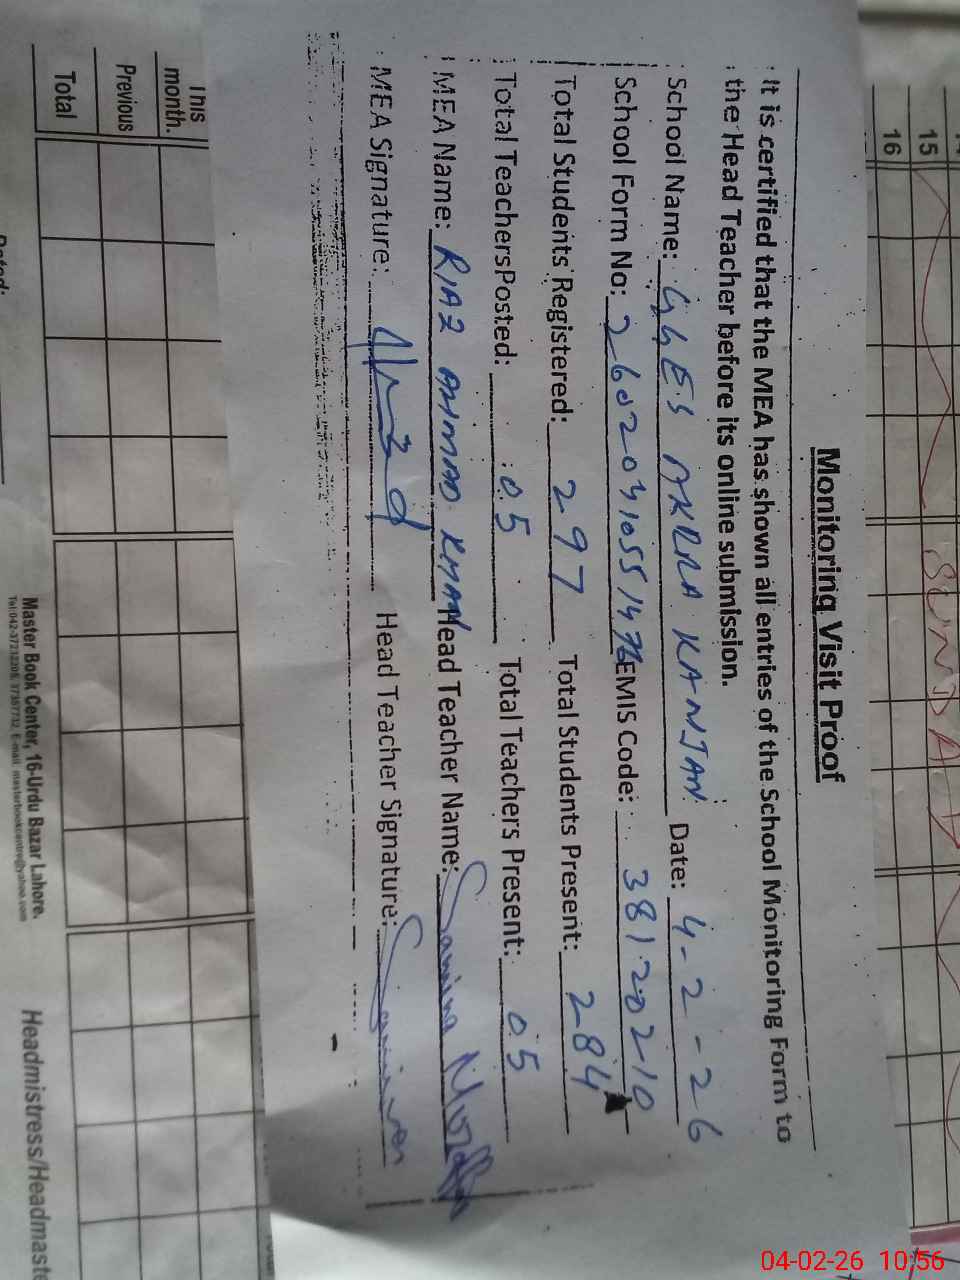 Monitoring Visit Proof
It is certified that the MEA has shown all entries of the School Monitoring Form to
the Head Teacher before its online submission.
School Name: GGES AKRRA KANJAN Date: 4-2-26
School Form No: EMIS Code: 38120210
Total Students Registered: 297 Total Students Present: 284
Total TeachersPosted: 05 Total Teachers Present: 05
MEA Name: RIAZ AHMAD KHAN Head Teacher Name: Samina
MEA Signature: Head Teacher Signature:
15
16
SUNDAY
This
month.
Previous
Total
Dated:
Master Book Center, 16-Urdu Bazar Lahore.
Headmistress/Headmaste
04-02-26 10:56